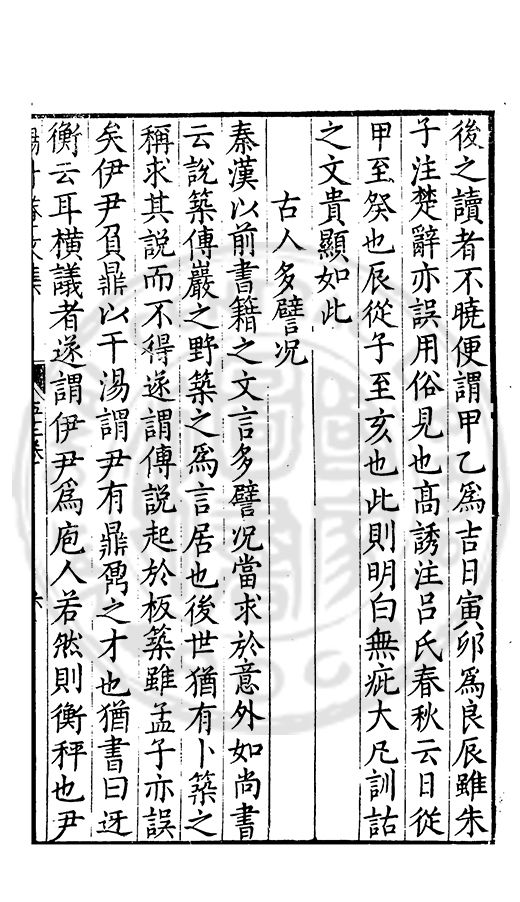 後之讀者不曉便謂甲乙爲吉日寅卯爲良辰雖朱
子注楚辭亦誤用俗見也高誘注呂氏春秋云日從
甲至癸也辰從子至亥也此則明白無疵大凡訓詁
之文貴顯如此
古人多譬况
秦漢以前書籍之文言多譬况當求於意外如尚書
云說築傅巖之野築之爲言居也後世猶有卜築之
稱求其說而不得遂謂傅說起於板築雖孟子亦誤
矣伊尹負鼎以干湯謂尹有鼎鼐之才也猶書曰迓
衡云耳橫議者遂謂伊尹爲庖人若然則衡秤也尹